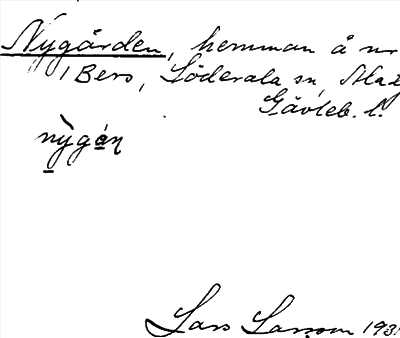 Nygården, hemman å nr
1 Berg, Söderala sn,
Gävleb. l.
nỳgá̱ɳ
Lars Larsson 193